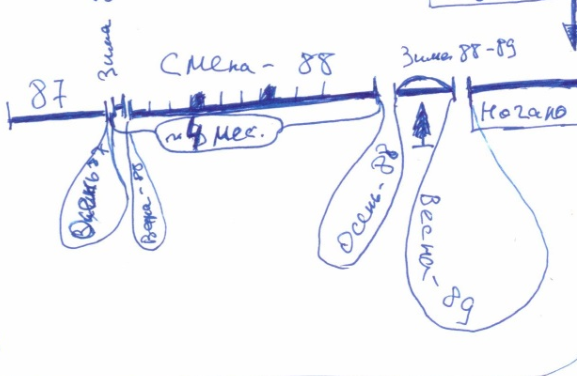 Зима
Смена - 88
Зима 88-89
87
мес.
Начало
Осень 87
Весна - 88
Осень - 88
Весна - 89